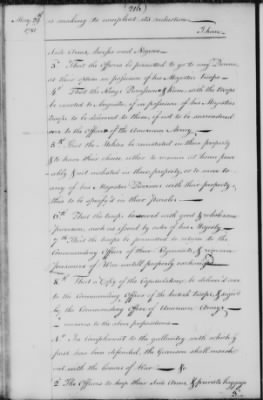 (216)
May 29th
1781
is making to compleat its reduction.
I have
Side Arms, horses and Negroes.
3d That the Officers be permitted to go to any Prison
at their option in possession of his Majestys Troops —
4th That the Kings Provisions & Rum, with the Troops
be carried to Augusta if in possession of his Majestys
troops to be delivered to them, if not to be surrendered
over to the Officer of the American Army.
5th That the Militia be maintained in their property
& to have their choice either to remain at home peace
ably & not molested in their property, or to move to
any of his Majestys Provinces with their property,
this to be specified in their Paroles —
6th That the troops be served with good & wholesome
Provision, such as allowed by order of his Majesty —
7th That the troops be permitted to return to the
Commanding Officer of their Regiments, &
Prisoners of War untill properly exchanged
8th That a Copy of the Capitulation be delivered over
to the Commanding Officer of the british troops & signed
by the Commanding Officer of American Army —
answers to the above propositions —
1st In compliment to the gallantry with which y
post has been defended, the Garrison shall march
out with the honors of War — &
2 The Officers to keep their Side Arms & private baggage
3